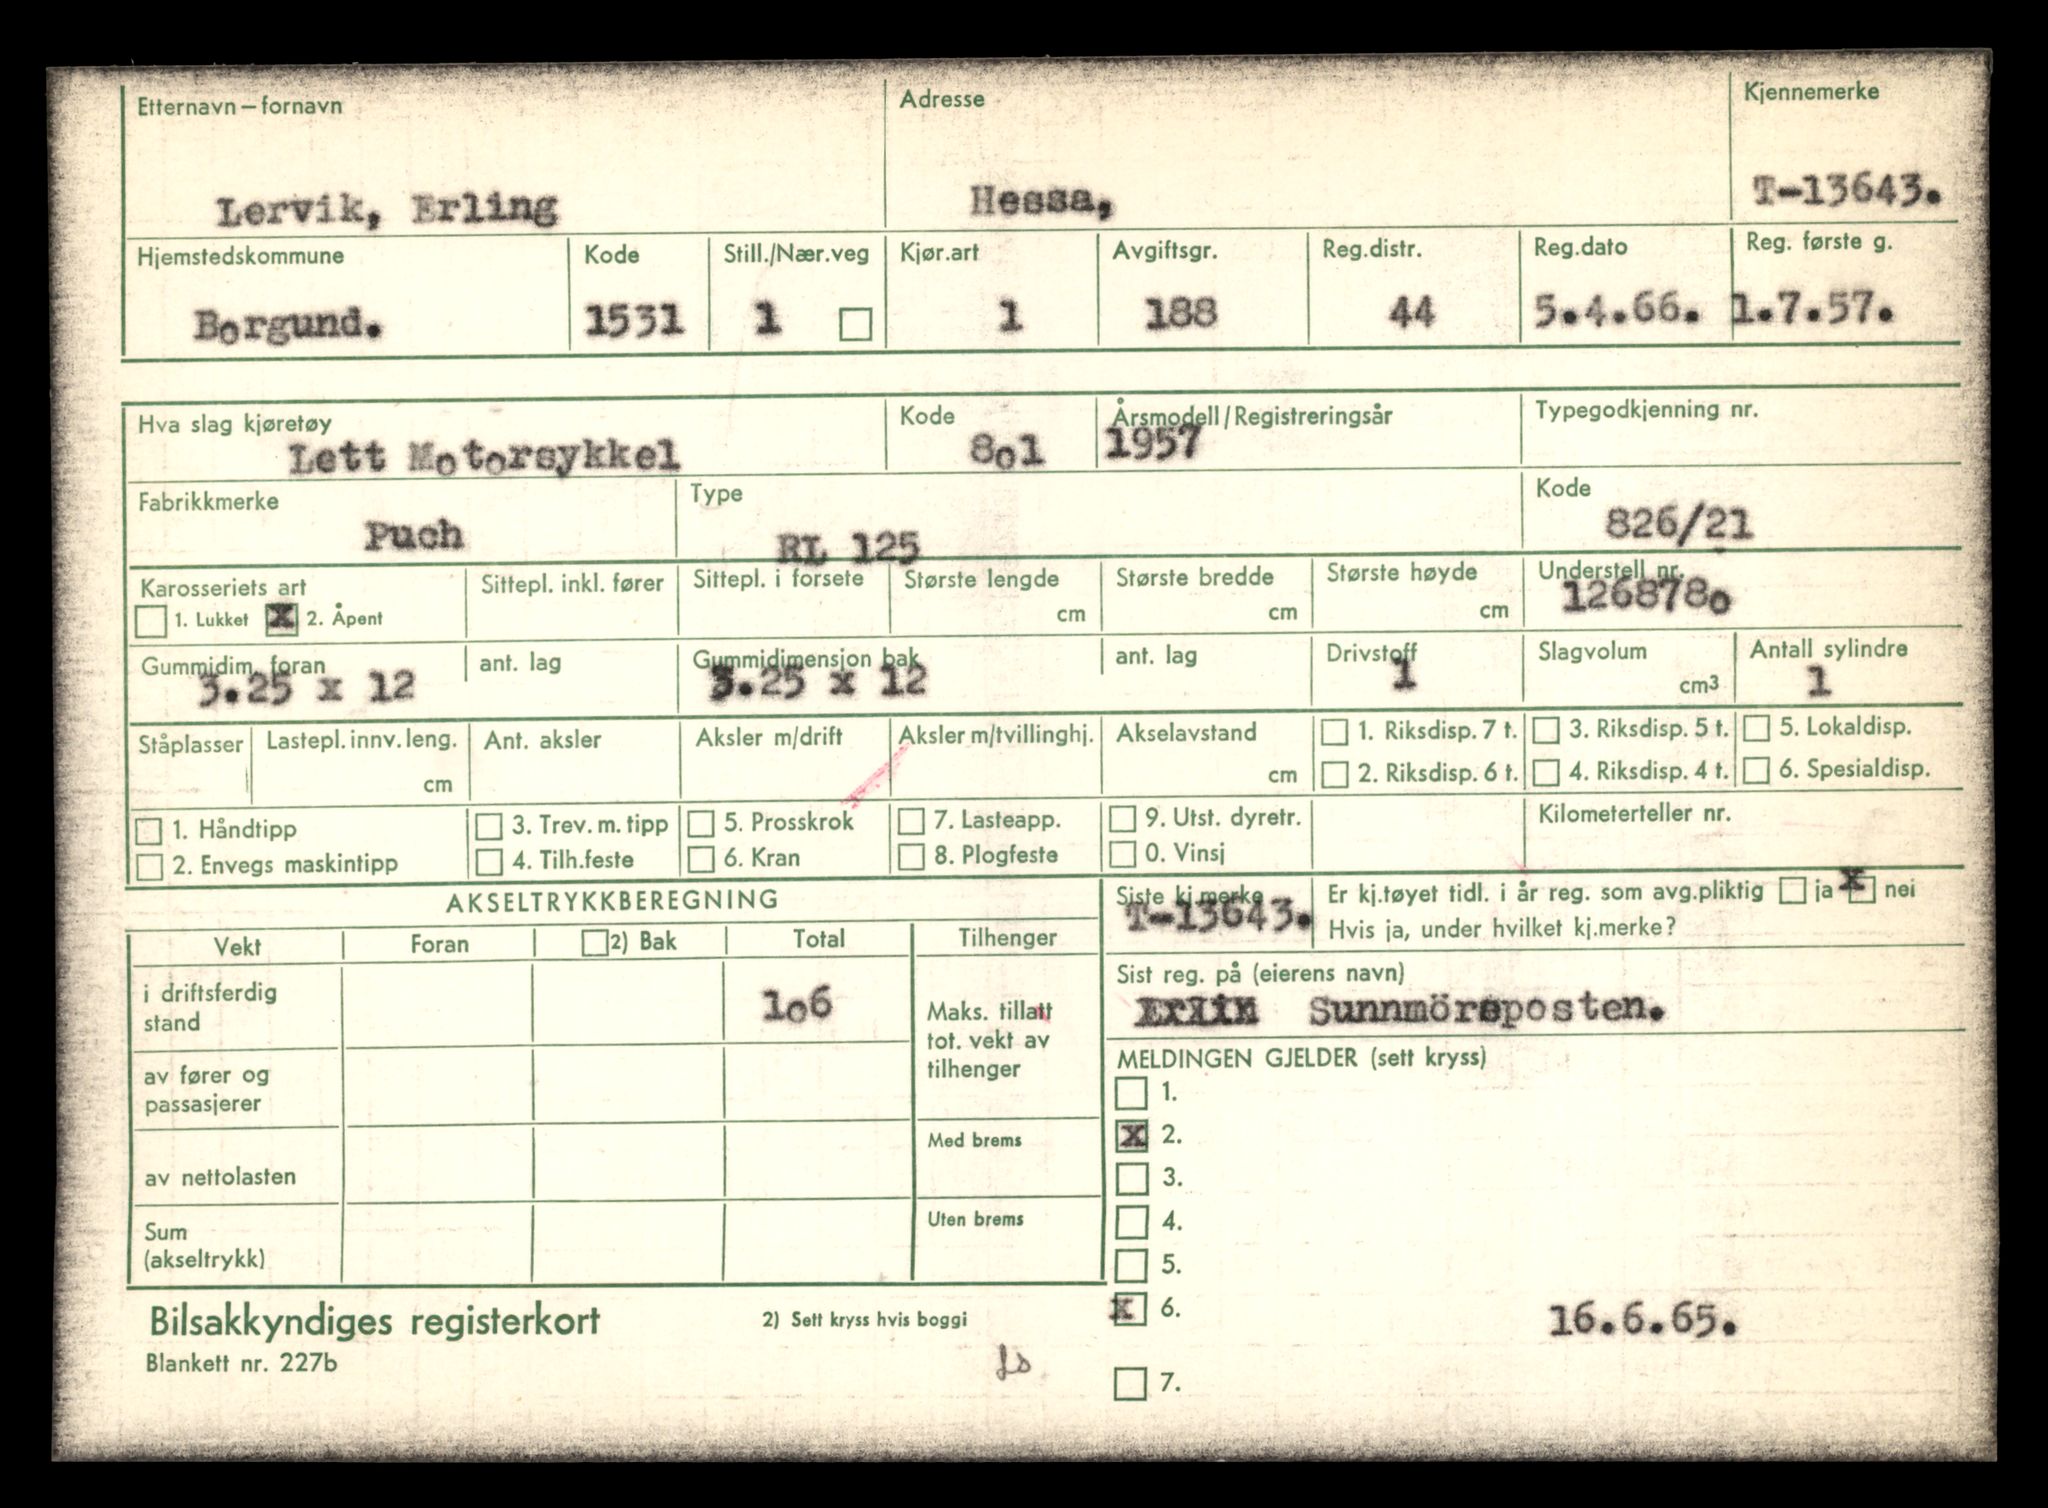 Etternavn – fornavn Adresse Kjennemerke
Lervik, Erling Hessa, T-13643.
Hjemstedskommune Kode Still./Nær.veg Kjør.art Avgiftsgr. Reg.distr. Reg.dato Reg. første g.
Borgund. 1531 1 1 188 44 5.4.66. 1.7.57.
Hva slag kjøretøy Kode Årsmodell/Registreringsår Typegodkjenning nr.
Lett Motorsykkel 8o1 1957
Fabrikkmerke Type Kode
Puch RL 125 826/21
Karosseriets art Sittepl. inkl. fører Sittepl. i forsete Største lengde Største bredde Største høyde Understell nr.
1. Lukket X 2. Åpent cm cm cm 126878o
Gummidim. foran ant. lag Gummidimensjon bak ant. lag Drivstoff Slagvolum Antall sylindre
3.25 x 12 3.25 x 12 1 cm3 1
Ståplasser Lastepl. innv. leng. Ant. aksler Aksler m/drift Aksler m/tvillinghj. Akselavstand 1. Riksdisp. 7 t. 3. Riksdisp. 5 t. 5. Lokaldisp.
cm cm 2. Riksdisp. 6 t. 4. Riksdisp. 4 t. 6. Spesialdisp.
1. Håndtipp 3. Trev. m. tipp 5. Prosskrok 7. Lasteapp. 9. Utst. dyretr. Kilometerteller nr.
2. Envegs maskintipp 4. Tilh.feste 6. Kran 8. Plogfeste 0. Vinsj
AKSELTRYKKBEREGNING Siste kj.merke Er kj.tøyet tidl. i år reg. som avg.pliktig ja X nei
T-13643. Hvis ja, under hvilket kj.merke?
Vekt Foran 2) Bak Total Tilhenger
Sist reg. på (eierens navn)
i driftsferdig stand 1o6 Maks. tillatt tot. vekt av tilhenger
Sunnmörsposten.
MELDINGEN GJELDER (sett kryss)
av fører og passasjerer
1.
Med brems X 2.
av nettolasten 3.
Uten brems 4.
Sum (akseltrykk) 5.
X 6. 16.6.65.
Bilsakkyndiges registerkort 2) Sett kryss hvis boggi
Blankett nr. 227b
7.